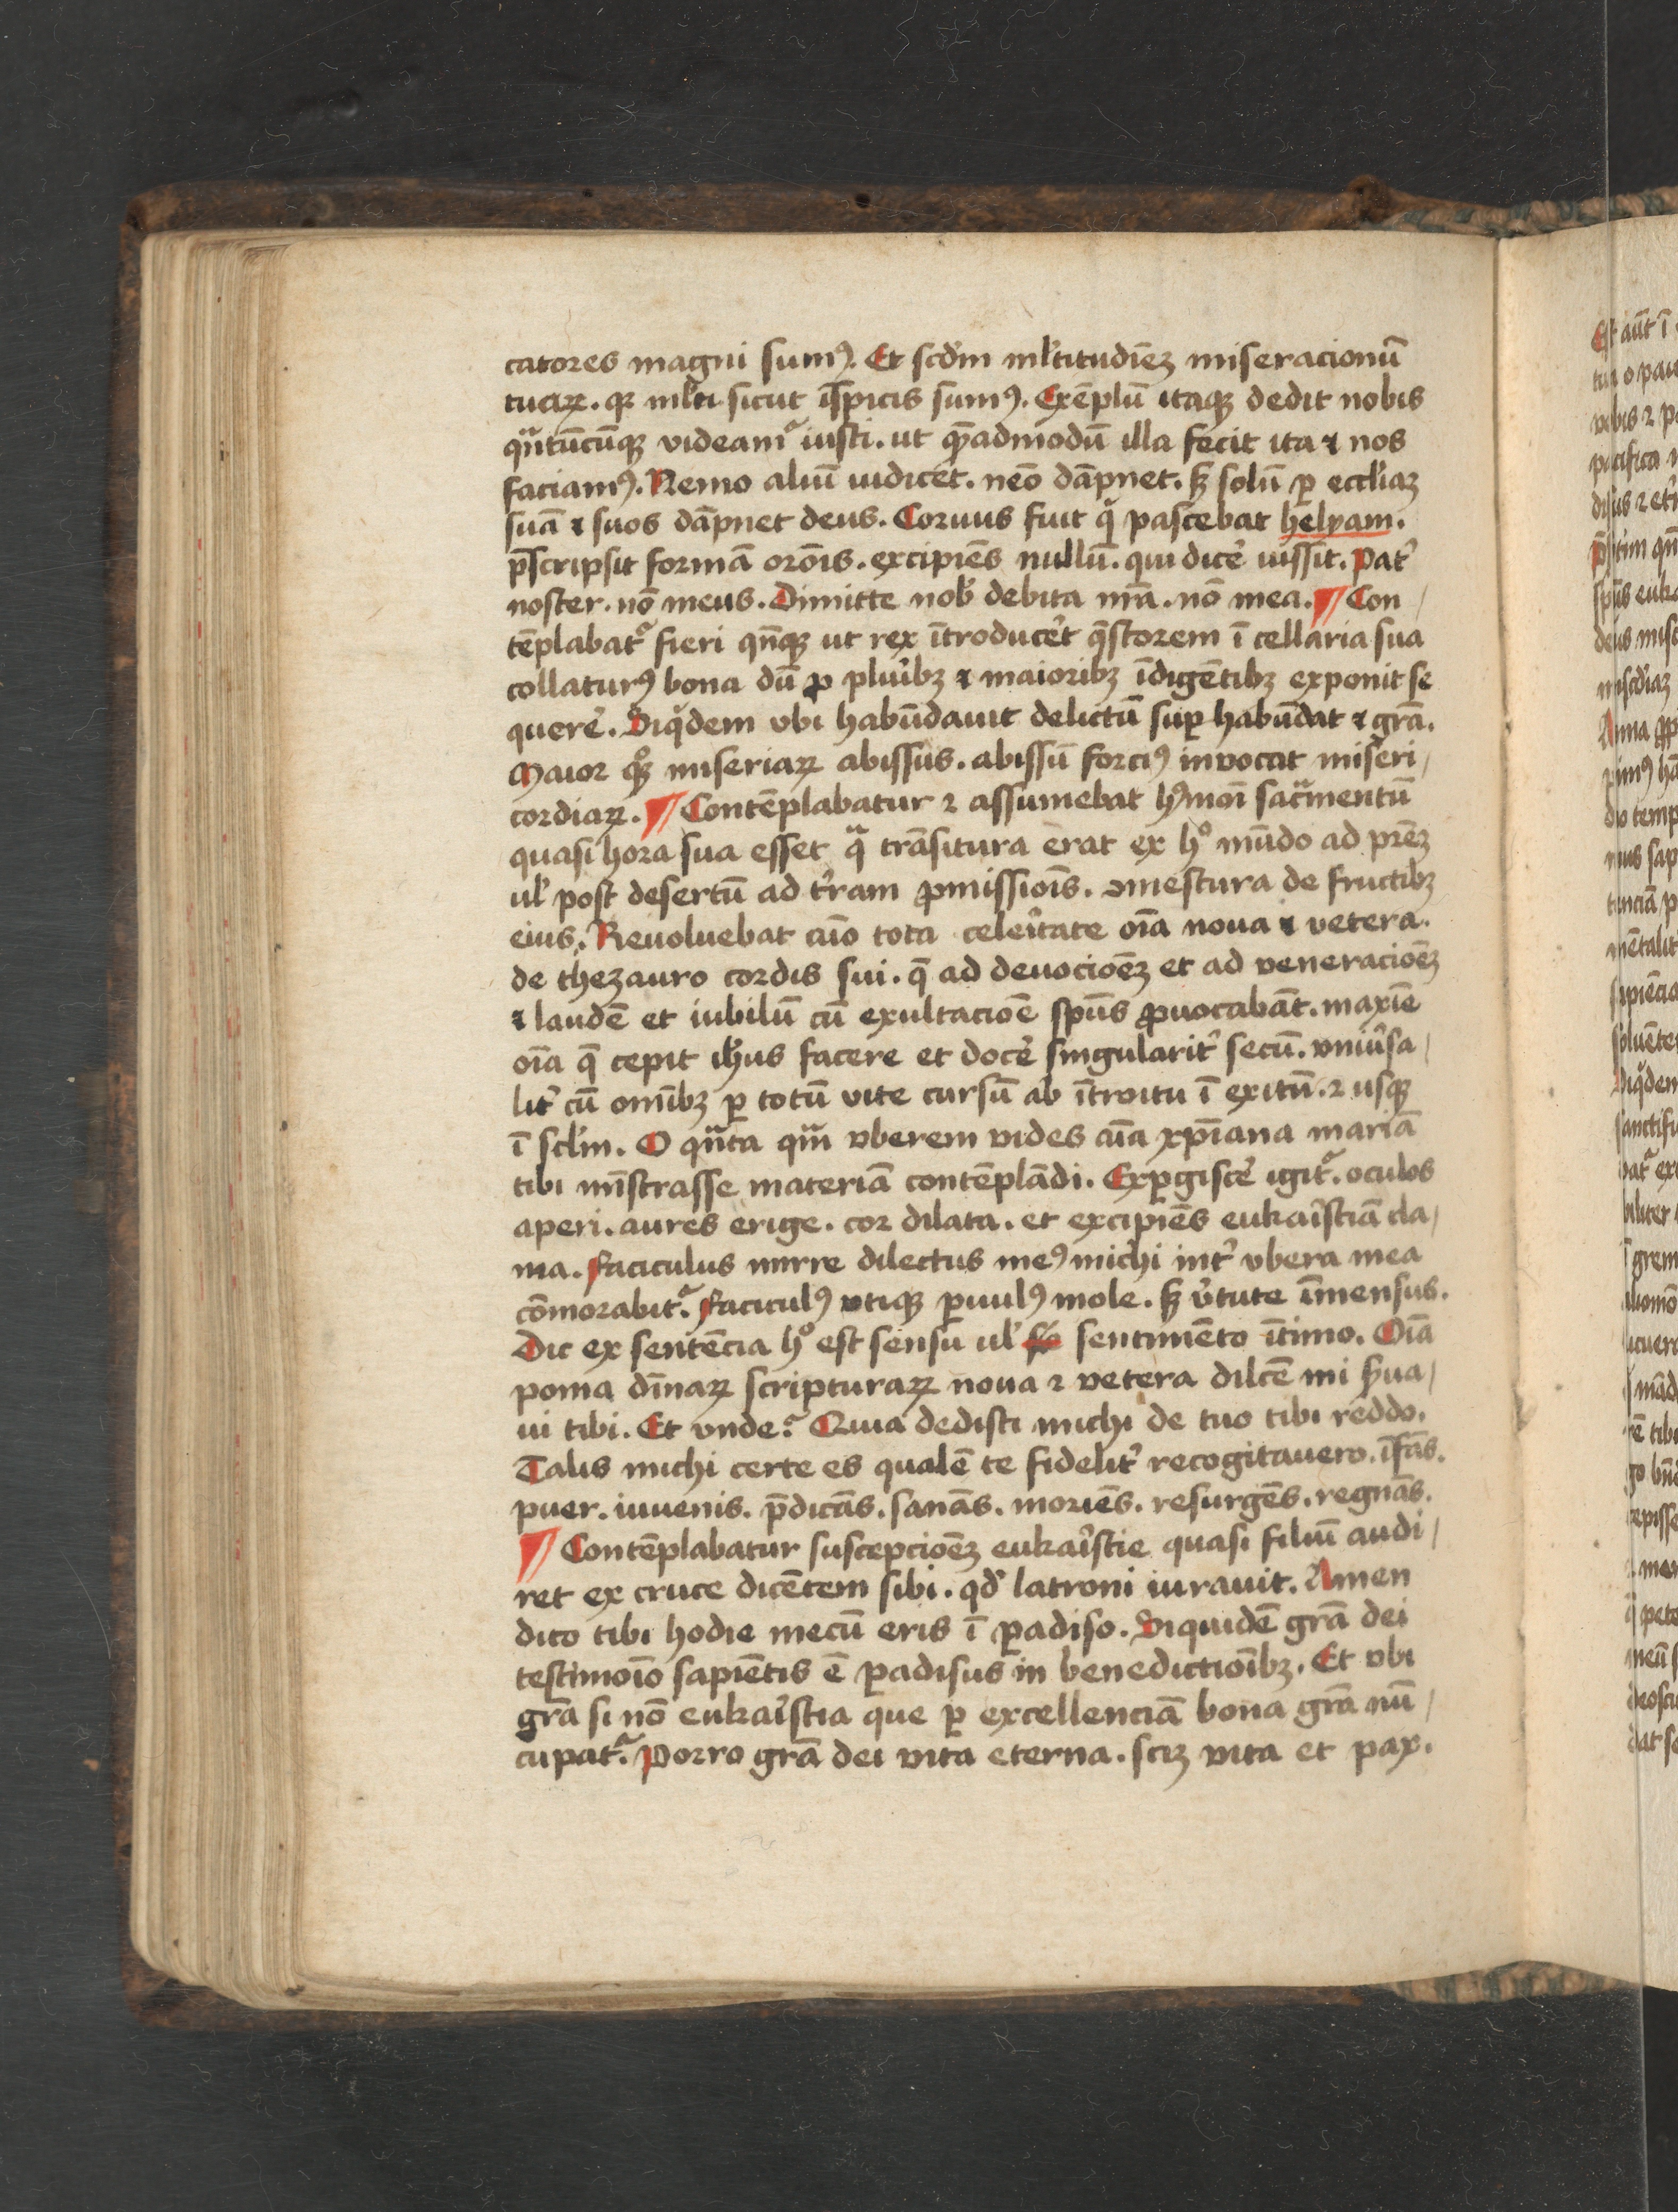 catores magni sumꝰ. Et scd̓m ml̓titudīeꝫ miseracionū
tuaꝝ. qꝛ ml̓ti sicut īspicis sumꝰ. Exēplū itaqꝫ dedit nobis
qᷓntūcūqꝫ videamᷣ iusti. ut qᷓadmodū illa fecit ita ⁊ nos
faciamꝰ. Nemo aliū iudicet. neō dāpnet. sꝫ solū ꝑ eccl̓iaꝫ
suā ⁊ suos dāpnet deus. Coruus fuit qͥ pascebat helyam.
p̄scripsit formā orōis. excipiēs nullū. qui dicē iussit. Pat̓
noster. nō meus. Dimitte nob̓ debita nr̄a. nō mea. ¶ Con
tēplabatᷣ fieri qn̄qꝫ ut rex ītroduceret q̄storem ī cellaria sua
collaturꝰ bona dū ꝓ plur̓ibꝫ ⁊ maioribꝫ īdigētibꝫ exponit se
querē. Siqͥdem vbi habūdauit delictū suꝑ habūdat ⁊ grā.
Maior qͦꝫ miseriaꝝ abissus. abissū forciꝰ inuocat miseri
cordiaꝝ. ¶ Contēplabatur ⁊ assumebat hꝰmōi sacᷓmentū
quasi hora sua esset qᷓ trāsitura erat ex hͦ mūdo ad prēꝫ
ul̓ post desertū ad t̓ram ꝓmissiōis. ꝯmestura de fructibꝫ
eius. Reuoluebat aīo tota celer̓itate oīa noua ⁊ vetera.
de thezauro cordis sui. q̄ ad deuocioēꝫ et ad veneracioēꝫ
⁊ laudē et iubilū cū exultacioē spūs ꝓuocabāt. maxīe
oīa q̄ cepit ih̓us facere et docē singularit̓ secū. vniu̓sa
lit̓ cū omībꝫ ꝑ totū vite cursū ab ītroitu ī exitū. ⁊ usqꝫ
ī scl̓m. O qᷓnta qᷓm vberem vides aīa xp̄iana mariā
tibi mīstrasse materiā contēplādi. Exꝑgiscē igitᷣ. oculos
aperi. aures erige. cor dilata. et excipiēs eukar̓istiā cla
ma. faciculus mirre dilectus meꝰ michi int̓ vbera mea
cōmorabitᷣ. faciculꝰ vtiqꝫ ꝑuulꝰ mole. sꝫ v̓tute īmensus.
Dic ex sentēcia hͦ est sensu ul̓ sentimēto ītimo. Oīa
poma dīnaꝝ scripturaꝝ noua ⁊ vetera dilcē mi ẜua
ui tibi. Et vnde? Quia dedisti michi de tuo tibi reddo.
Talis michi certe es qualē te fidelit̓ recogitauero. īfās.
puer. iuuenis. p̄dicās. sanās. moriēs. resurgēs. regnās.
¶ Contēplabatur suscepcioēꝫ eukar̓istie quasi filiū audi
ret ex cruce dicētem sibi. qd̓ latroni iurauit. Amen
dico tibi hodie mecū eris ī ꝑadiso. Siquidē grā dei
testimoīo sapiētis ē ꝑadisus in benedictioībꝫ. Et vbi
grā si nō eukar̓istia que ꝑ excellenciā bona grā nū
cupatᷣ. Porro grā dei vita eterna. sciꝫ vita et pax.